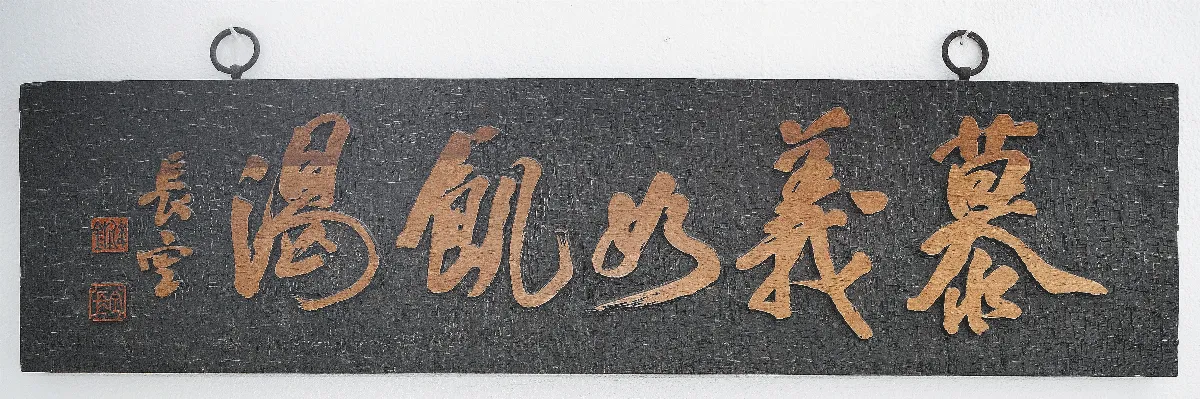 慕義如飢渴
長空